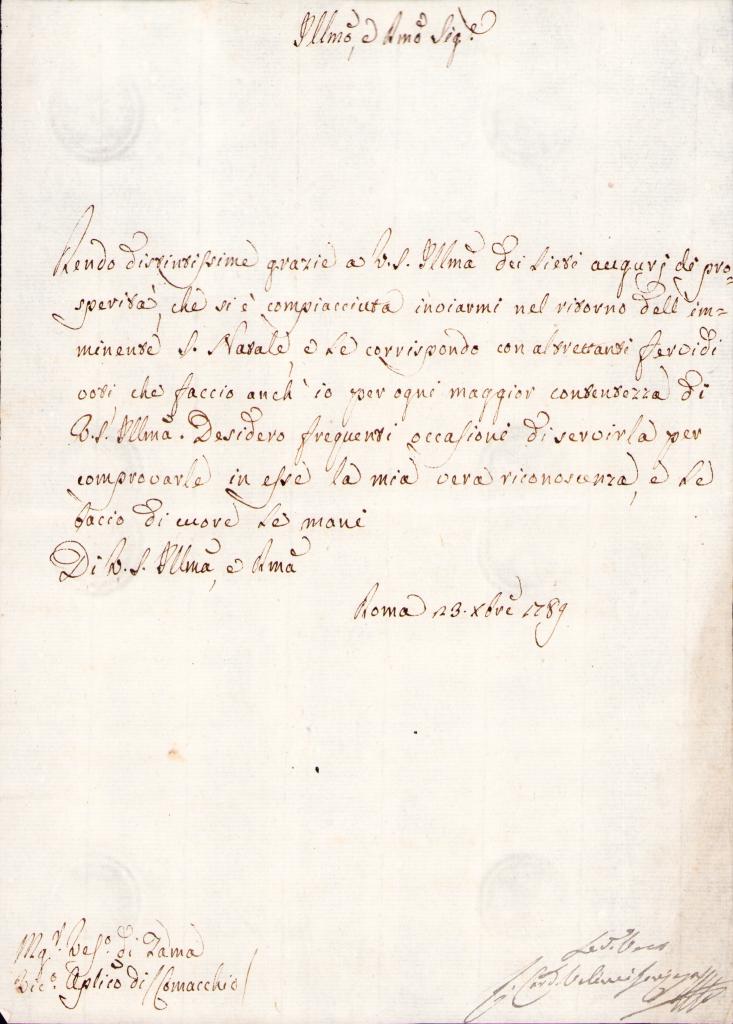 Illmo, e Rmo Sigre
Rendo distintissime grazie a V. S. Illma dei lieti augurj di pro=
sperità, che si è compiacciuta inviarmi nel ritorno dell'im=
minente S. Natale, e Le corrispondo con altrettanti fervidi
voti che faccio anch'io per ogni maggior contentezza di
V. S. Illma. Desidero frequenti occasioni di servirla per
comprovarle in esse la mia vera riconoscenza, e Le
bacio di cuore Le mani
Di V. S. Illma, e Rma
Roma 23. Xbre 1789
Mgr. Vesco. di Zama
Vico. Aplico di Comacchio
Card.